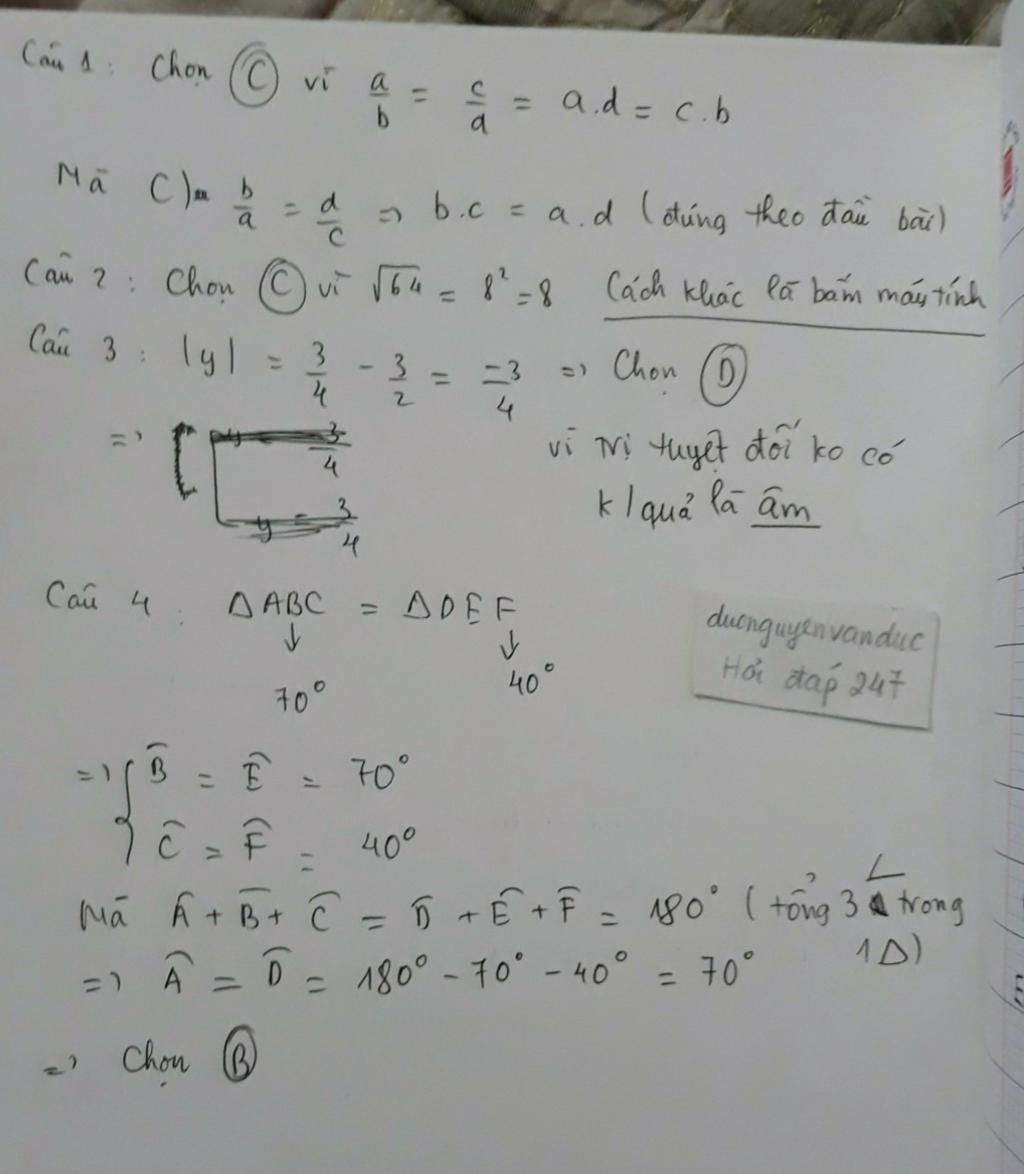 Câu 1 : Chọn Ⓒ vì a/b = c/d = a.d = c.b
Mà C) b/a = d/c => b.c = a.d (đúng theo đầu bài)
Câu 2 : Chọn Ⓒ vì √64 = 8² = 8 Cách khác là bấm máy tính
Câu 3 : |y| = 3/4 - 3/2 = -3/4 => Chọn Ⓓ
=>
vì trị tuyệt đối ko có
k/quả là âm
Câu 4 : ΔABC = ΔDEF
↓ ↓
70° 40°
ducnguyenvanduc
Hỏi đáp 247
=> { B̂ = Ê = 70°
Ĉ = F̂ = 40°
Mà Â + B̂ + Ĉ = D̂ + Ê + F̂ = 180° (tổng 3 ∠ trong
1Δ)
=> Â = D̂ = 180° - 70° - 40° = 70°
=> Chọn Ⓑ